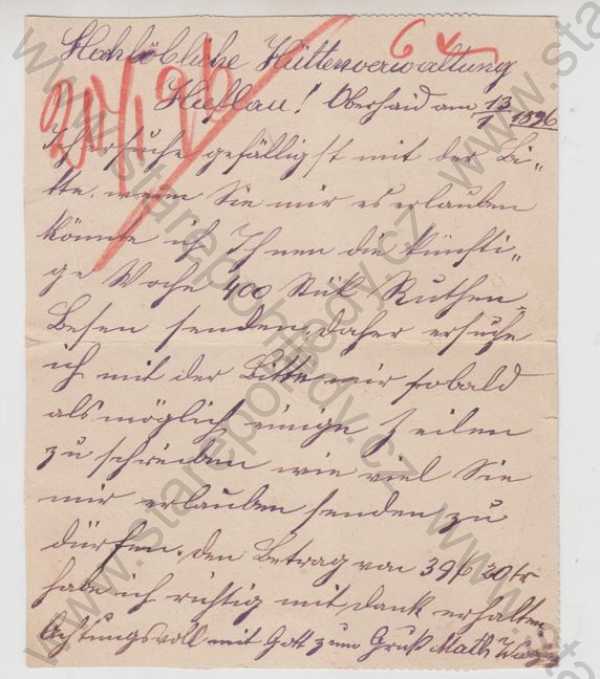 Hochlöbliche Hüttenverwaltung
Haflau! Oberhaid am 13/1 1896
Ich ersuche gefälligst mit der Bi„
tte, wenn Sie mir es erlauben
könnte ich Ihnen die künfti„
ge Woche 400 Stük Ruthen„
Besen senden, daher ersuche
ich mit der Bitte mir sobald
als möglich einige Zeilen
zu schreiben wie viel Sie
mir erlauben senden zu
dürfen. den Betrag von 39f 20kr
habe ich richtig mit dank erhalten.
Achtungsvoll mit Gott zum Gruß Math
www.starepohledy.cz